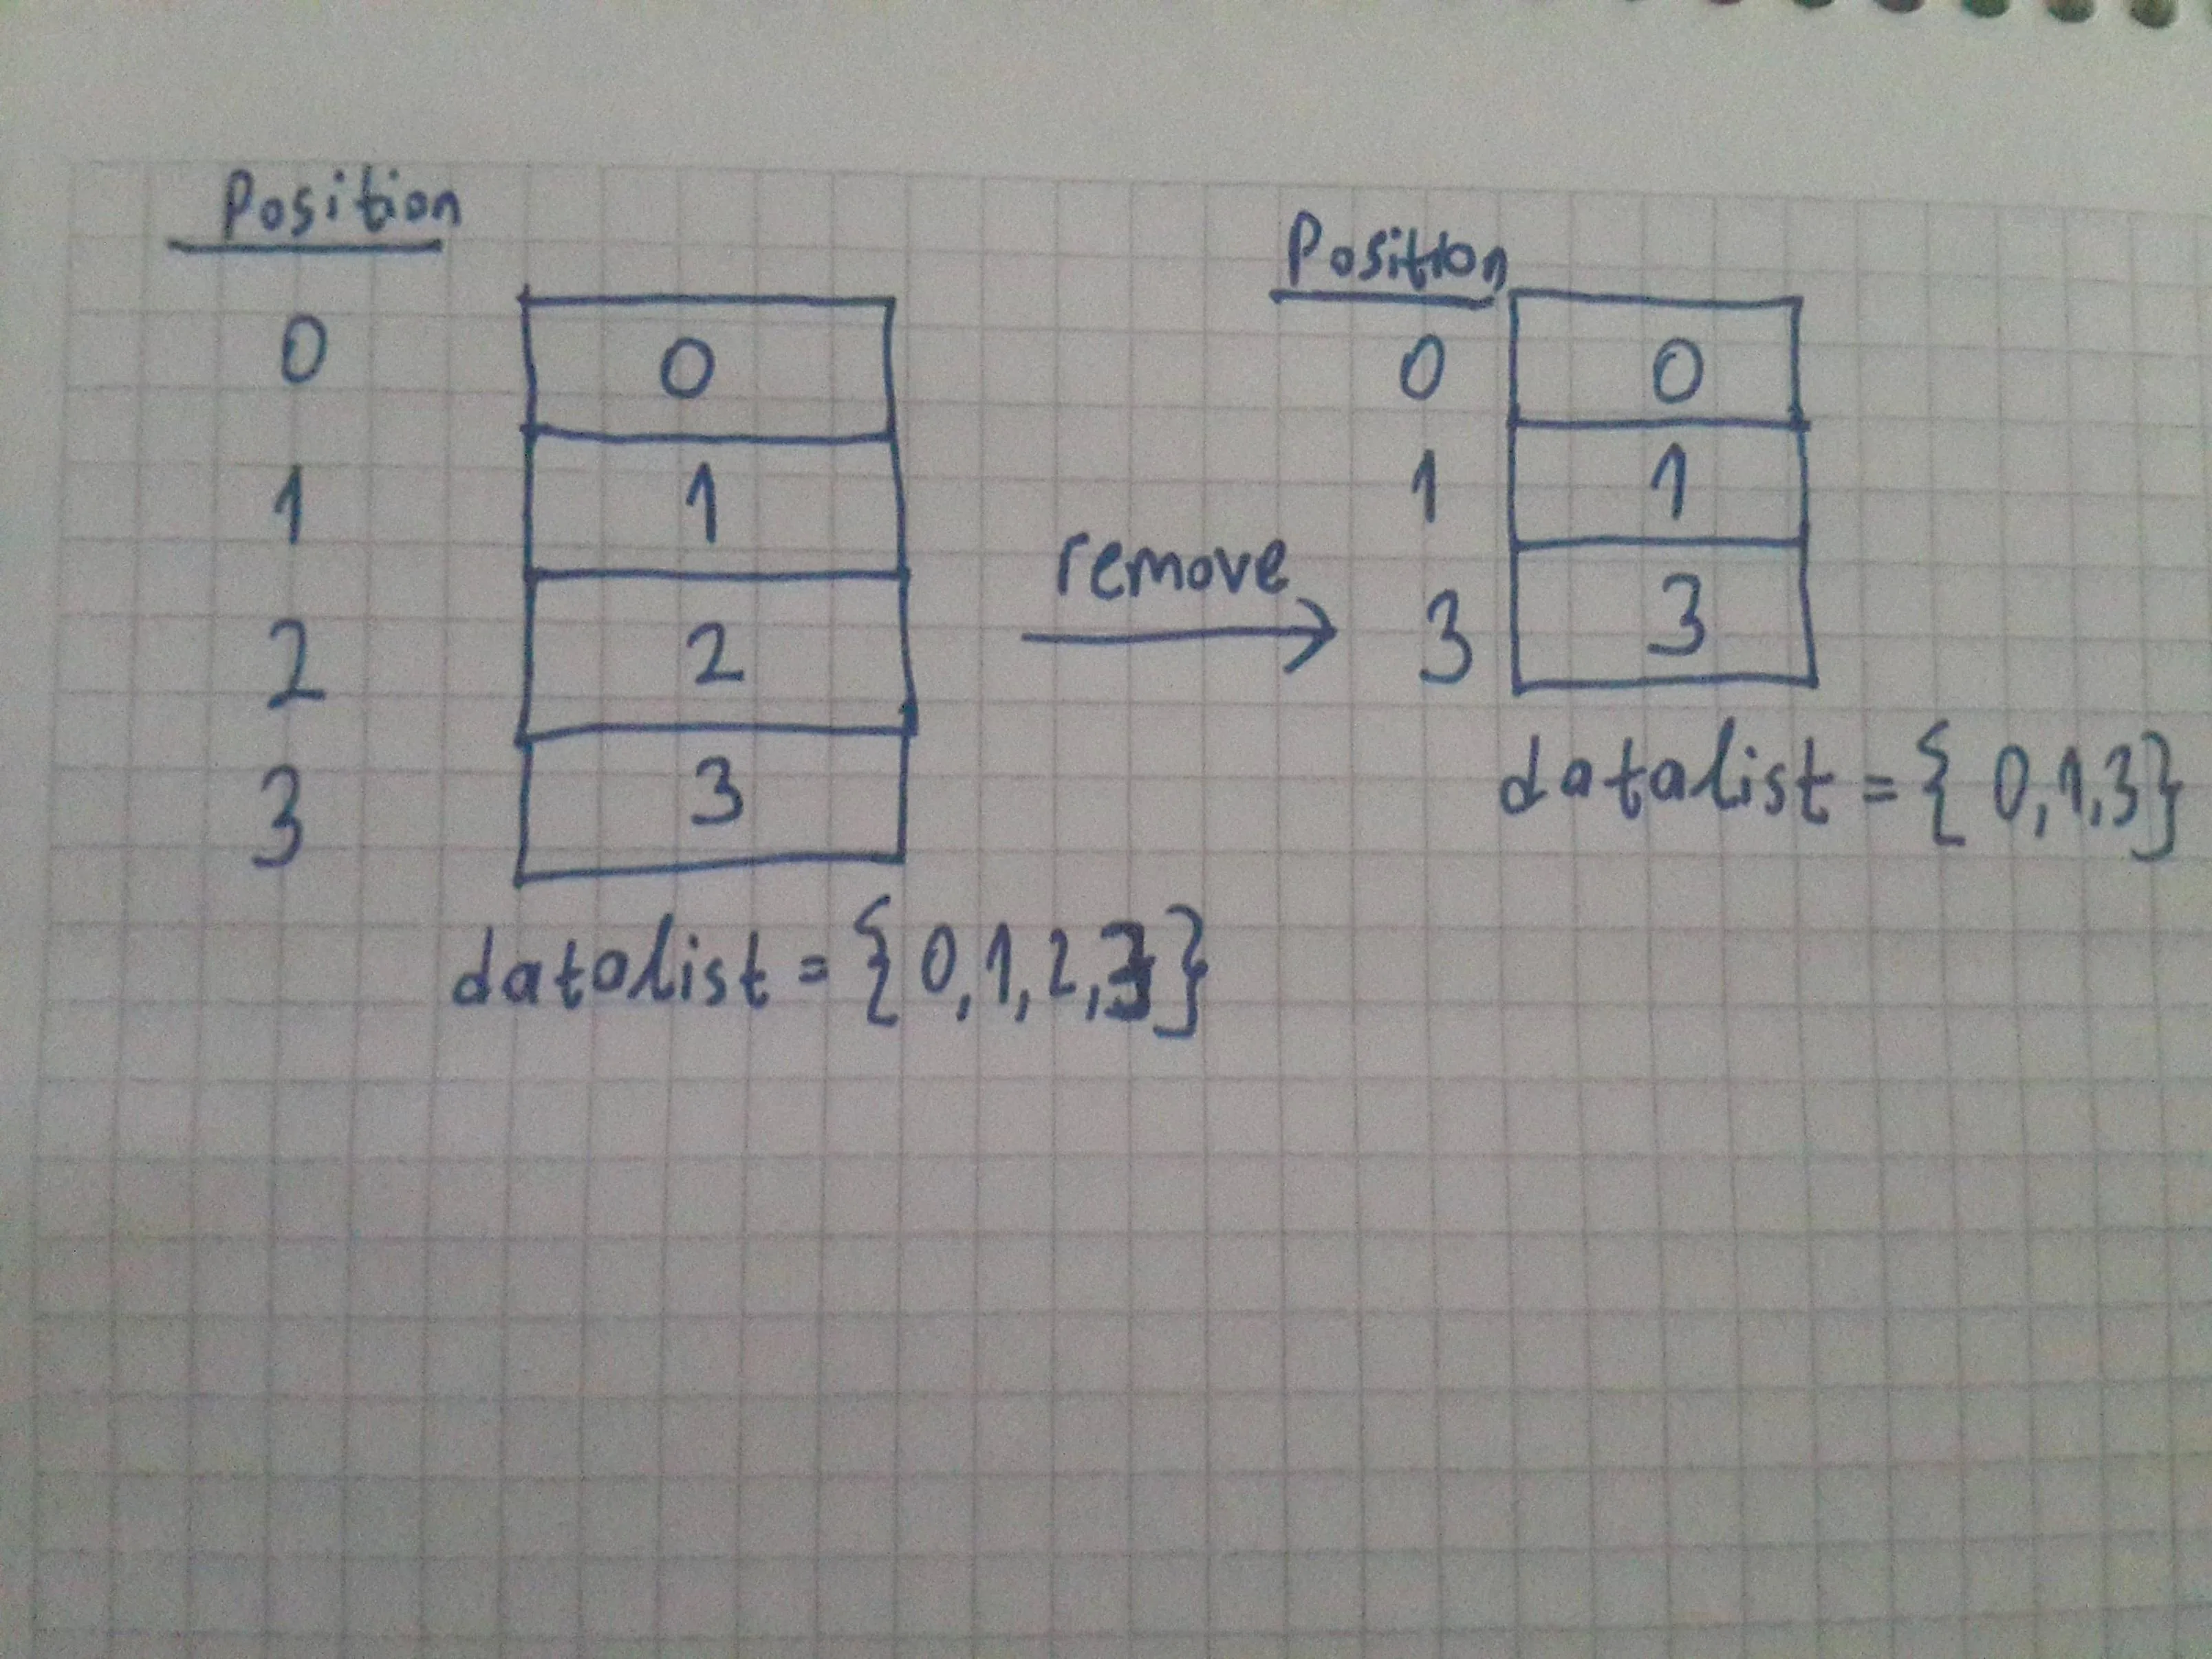 Position
0 0
1 1
2 2
3 3
datalist = {0,1,2,3}
remove
Position
0 0
1 1
3 3
datalist = { 0,1,3}